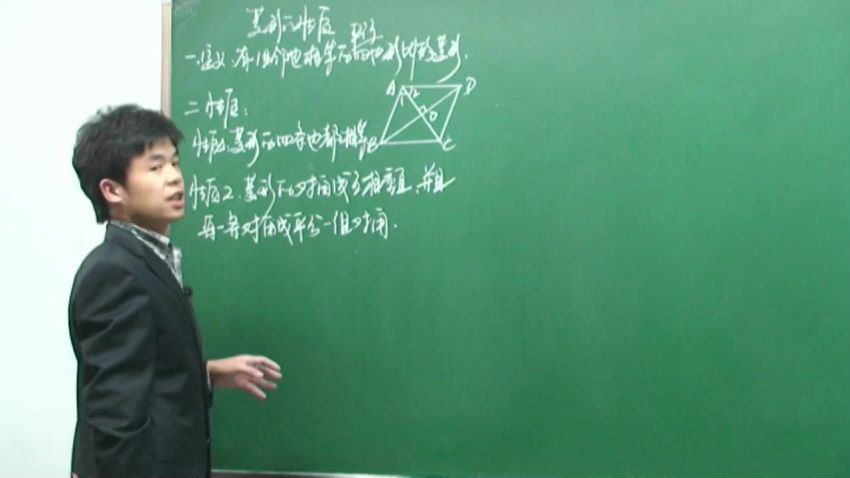 菱形的性质
一.定义:有一组邻边相等的平行四边形叫做菱形.
二.性质:
性质1.菱形的四条边都相等
A 1 2 D
O
B C
性质2.菱形的对角线互相垂直,并且
每一条对角线平分一组对角.